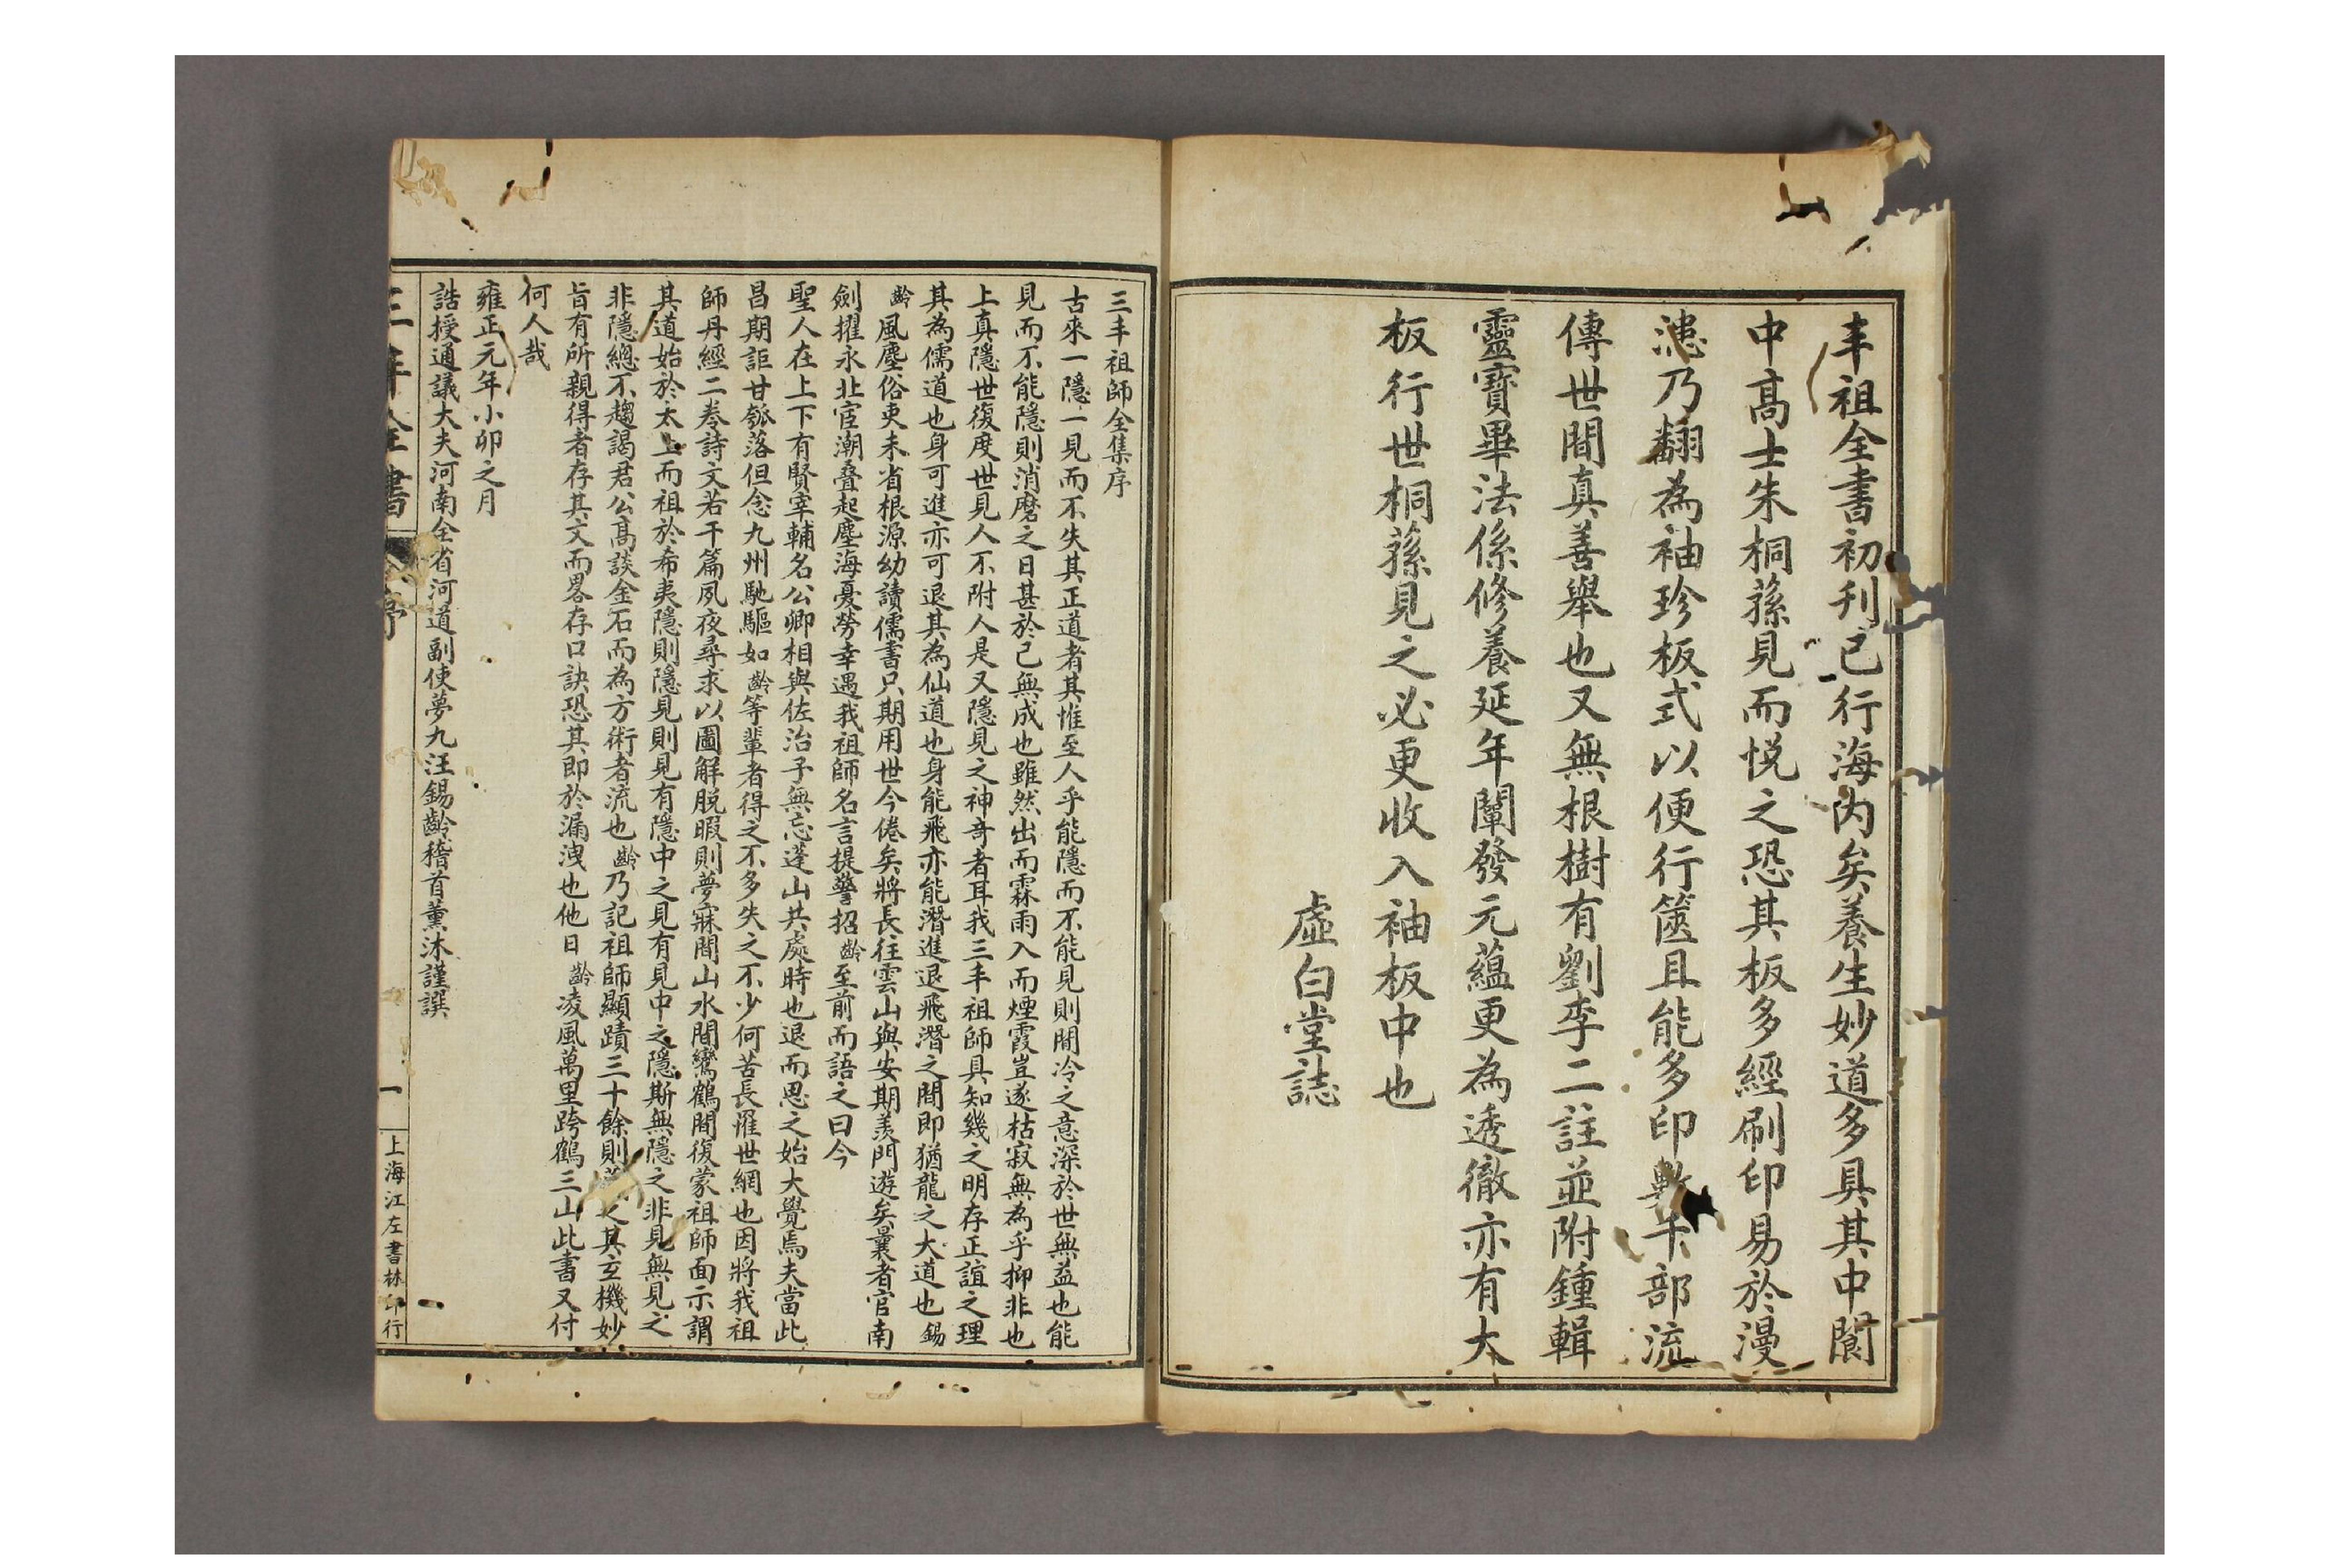 丰祖全書初刋已行海內矣養生妙道多具其中閬
中高士朱桐蓀見而悅之恐其板多經刷印易於漫
漶乃翻為袖珍板式以便行篋且能多印數千部流
傳世間真善舉也又無根樹有劉李二註並附鍾輯
靈寶畢法係修養延年闡發元蘊更為透徹亦有大
板行世桐蓀見之必更收入袖板中也
虛白堂誌
三丰祖師全集序
古來一隱一見而不失其正道者其惟至人乎能隱而不能見則閒冷之意深於世無益也能
見而不能隱則消磨之日甚於己無成也雖然出而霖雨入而煙霞豈遂枯寂無為乎抑非也
上真隱世復度世見人不附人是又隱見之神奇者耳我三丰祖師具知幾之明存正誼之理
其為儒道也身可進亦可退其為仙道也身能飛亦能潛進退飛潛之間即猶龍之大道也錫
齡風塵俗吏未省根源幼讀儒書只期用世今倦矣將長往雲山與安期羨門遊矣曩者官南
劍擢永北宦潮疊起塵海憂勞幸遇我祖師名言提警招齡至前而語之曰今
聖人在上下有賢宰輔名公卿相與佐治予無忘蓬山共處時也退而思之始大覺焉夫當此
昌期詎甘瓠落但念九州馳驅如齡等輩者得之不多失之不少何苦長罹世網也因將我祖
師丹經二卷詩文若干篇夙夜尋求以圖解脫暇則夢寐間山水間鸞鶴間復蒙祖師面示謂
其道始於太上而祖於希夷隱則隱見則見有隱中之見有見中之隱斯無隱之非見無見之
非隱總不趨謁君公高談金石而為方術者流也齡乃記祖師顯蹟三十餘則之其玄機妙
旨有所親得者存其文而畧存口訣恐其即於漏洩也他日齡凌風萬里跨鶴三山此書又付
何人哉
雍正元年小卯之月
誥授通議大夫河南全省河道副使夢九汪錫齡稽首薰沐謹譔
三丰全書
序
一
上海江左書林印行